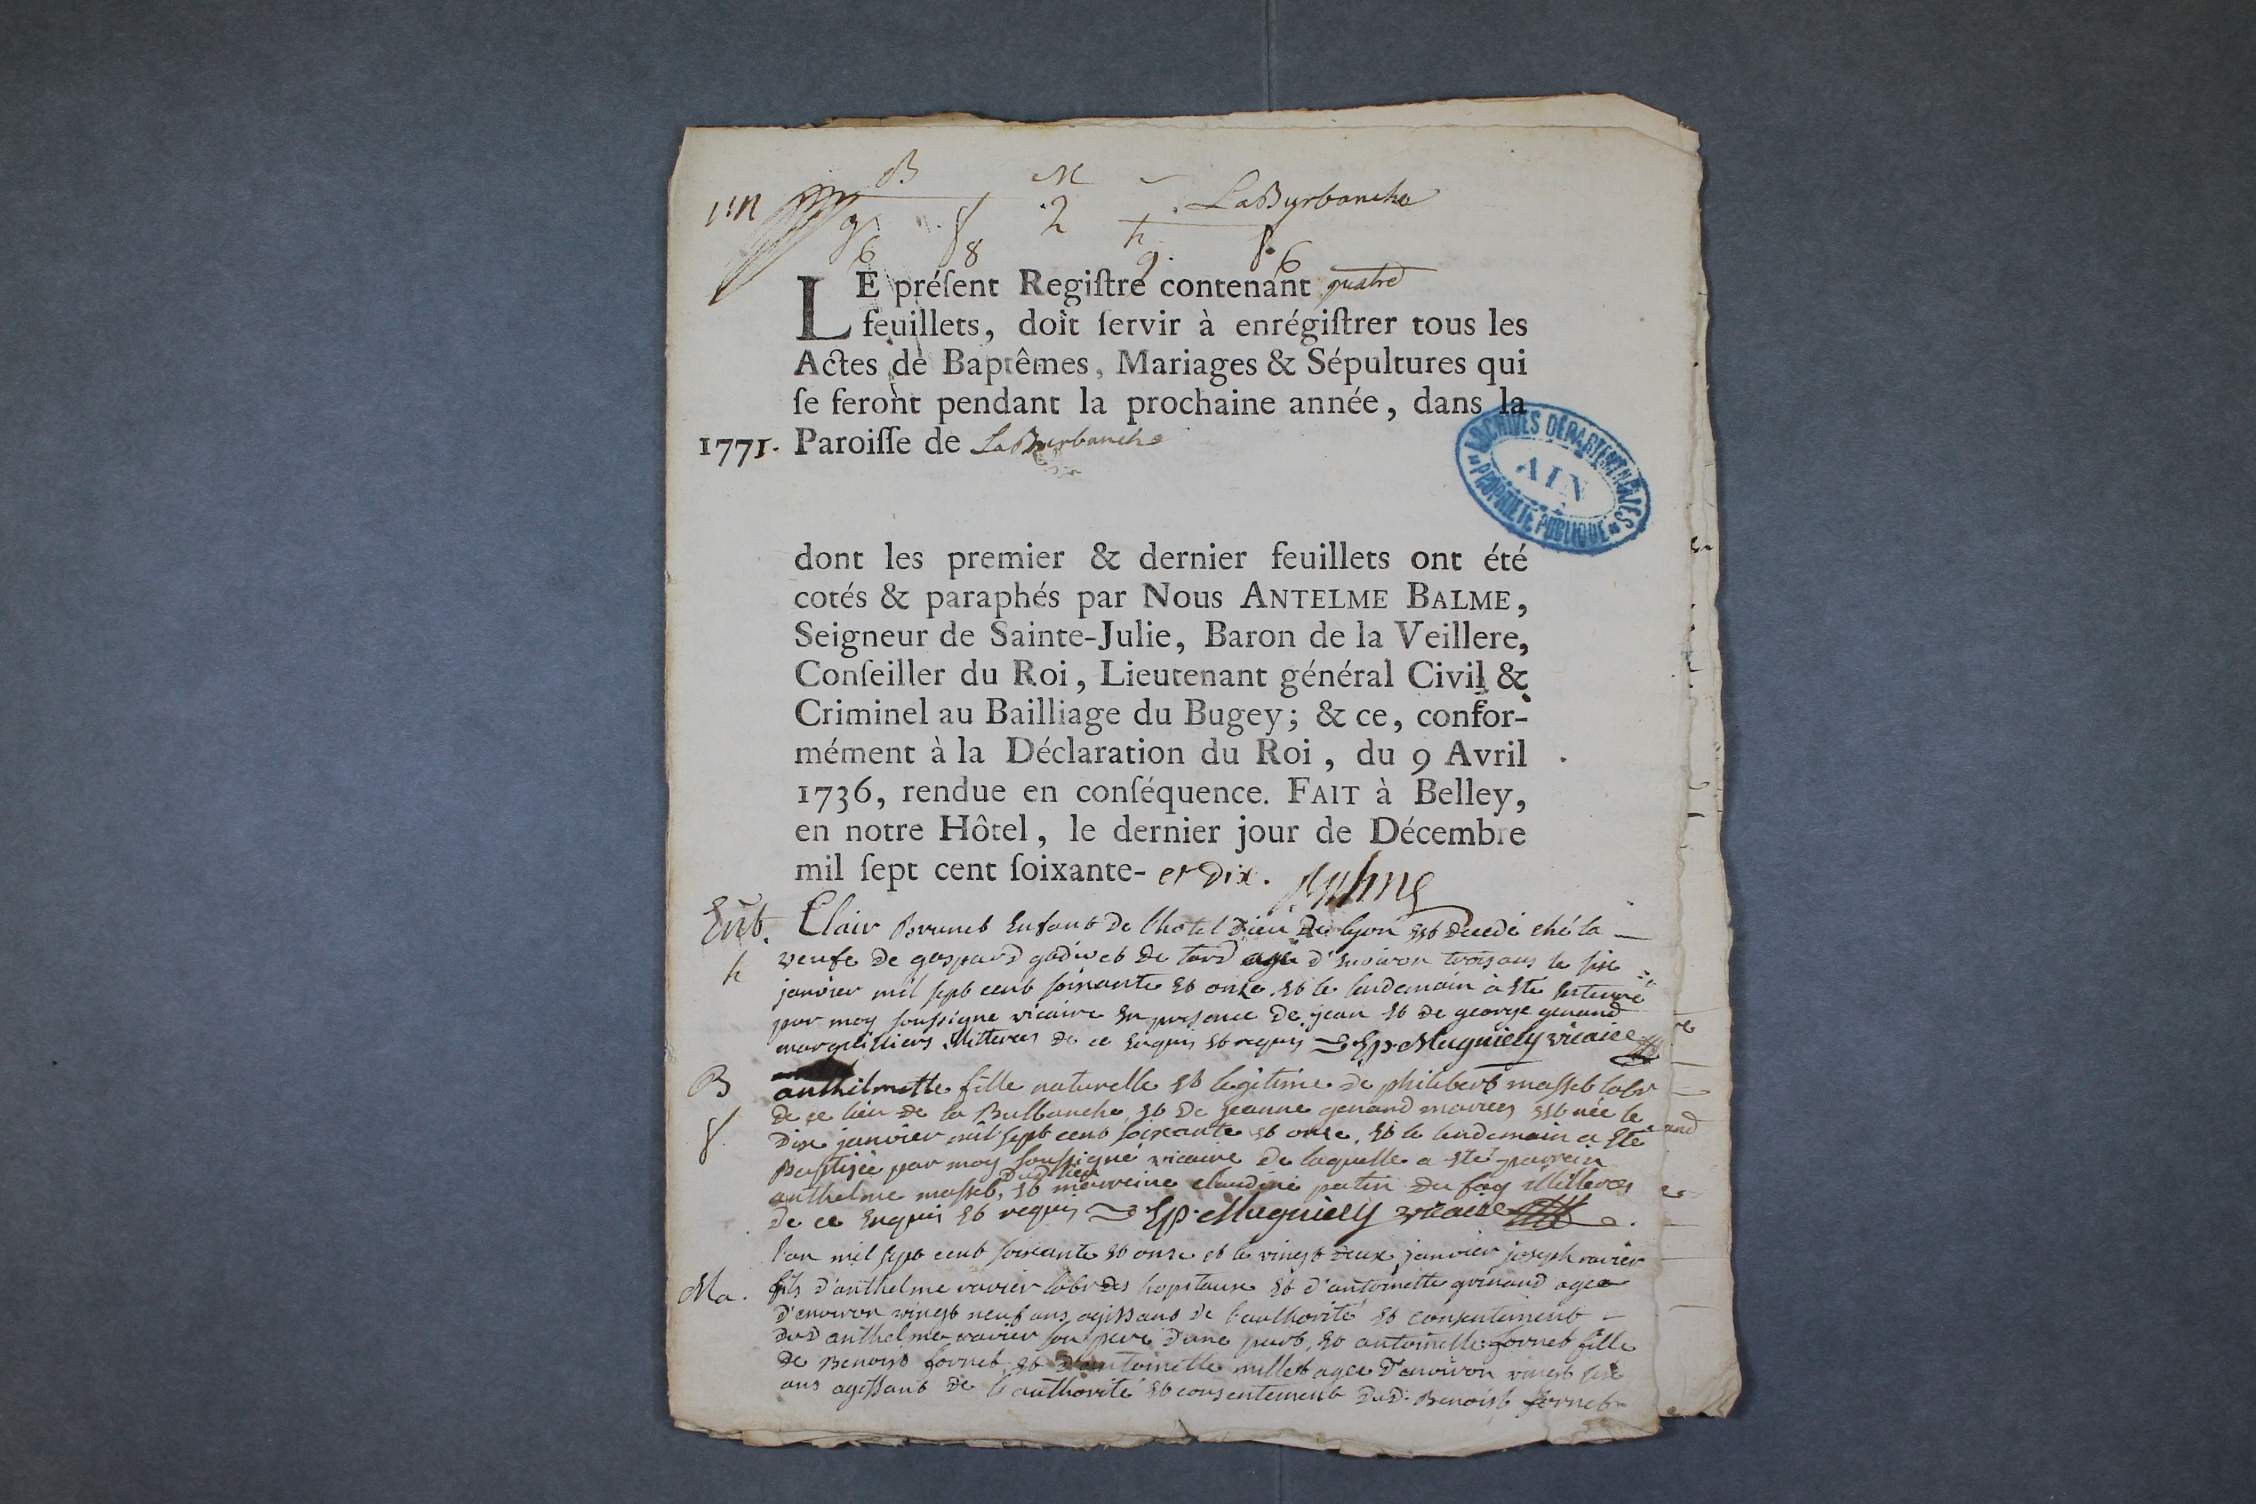 B M
LaBurbanche
g f 2 h f
6 8 9 6
LE préſent Regiſtre contenant quatre
feuillets, doit ſervir à enrégiſtrer tous les
Actes de Baptêmes, Mariages & Sépultures qui
ſe feront pendant la prochaine année, dans la
1771. Paroiſſe de LaBurbanche
ARCHIVES DÉPARTEMENTALES
AIN
PROPRIÉTÉ PUBLIQUE
dont les premier & dernier feuillets ont été
cotés & paraphés par Nous ANTELME BALME,
Seigneur de Sainte-Julie, Baron de la Veillere,
Conſeiller du Roi, Lieutenant général Civil &
Criminel au Bailliage du Bugey; & ce, confor-
mément à la Déclaration du Roi, du 9 Avril
1736, rendue en conſéquence. FAIT à Belley,
en notre Hôtel, le dernier jour de Décembre
mil ſept cent ſoixante- et dix.
Ent. Clair Brunet Enfant de l'hotel Dieu de lyon est decedé ché la
h veufe de gaspard godivet de tard agé d'environ trois ans le six
janvier mil sept cent soixante et onze. et le lendemain à eté enterré
par moy soussigne vicaire en presence de jean et de george genand
marguilliers illitteres de ce enquis et requis vicaire
B anthelmette fille naturelle et legitime de philibert masset labr
f de ce lieu de la Bulbanche et de jeanne genand mariés est née le
dix janvier mil sept cent soixante et onze. et le lendemain a eté
Baptisée par moy soussigné vicaire de laquelle a eté parrein
anthelme masset, dud lieu et marreine claudine patin du fay illitteres
de ce enquis et requis vicaire
l'an mil sept cent soixante et onze et le vingt deux janvier joseph ravier
Ma. fils d'anthelme ravier labr des hopitaux et d'antoinette grinand agé
d'environ vingt neuf ans agissant de l'authorité et consentement
dud anthelme ravier son pere d'une part, et antoinette fornet fille
de Benoist fornet et d'antoinette millet agée d'environ vingt six
ans agissant de l'authorité et consentement dud. Benoist fornet